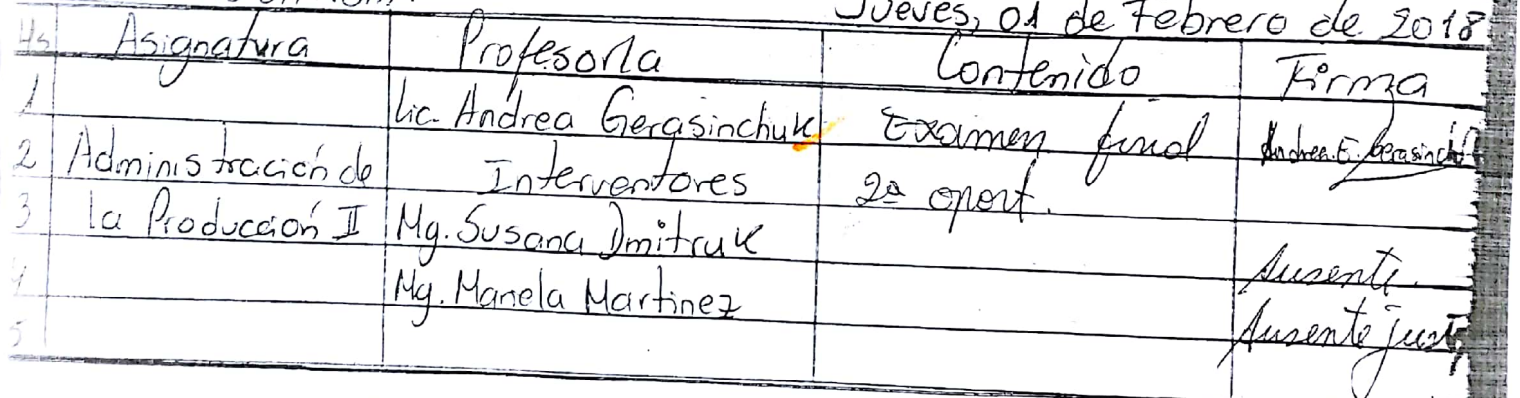 Jueves, 01 de Febrero de 2018
Hs Asignatura Profesor/a Contenido Firma
1 Lic. Andrea Gerasinchuk Examen final Andrea E. Gerasinch
2 Administración de Interventores 2ª oport.
3 la Producción II Mg. Susana Dmitruk Ausente.
4 Mg. Manela Martinez Ausente just
5